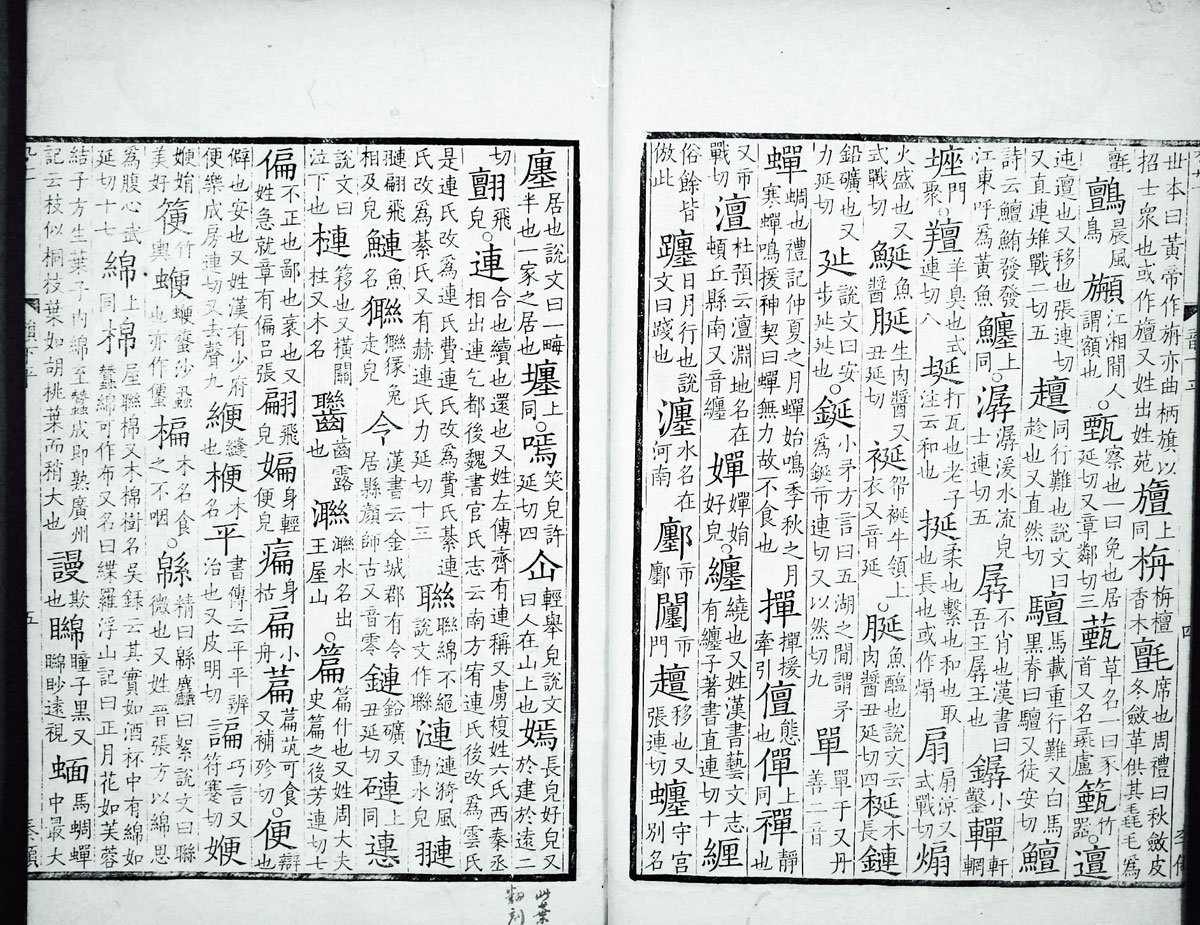 世本曰黃帝作旃亦曲柄旗以招士衆也或作旜又姓出姓苑 旜上同 栴栴檀香木 氈席也周禮曰秋斂皮冬斂革供其毳毛爲
氈 鸇晨風鳥 江湘間人謂額也○甄察也一曰免也居延切又章鄰切三 草名一曰豕首又名彘盧 籈竹器○邅
迍邅也又移也張連切又直連雉戰二切五 趁也又直然切 驙馬載重行難又白馬黑脊曰驙又徒安切 鱣
詩云鱣鮪發發江東呼爲黃魚 上同○潺潺湲水流皃士連切五 孱不肖也漢書曰吾王孱王也 小鑿 轏
門聚○羶羊臭也式連切八 埏打瓦也老子注云和也 挻柔也繫也和也取也長也或作煽 扇扇涼又式戰切 煽
火盛也又式戰切 魚醬 脠生肉醬又丑延切 牛領上衣又音延○脠魚醢也說文云肉醬丑延切四 梴木長 鏈
鉛礦也又力延切 㢟說文曰安步㢟㢟也○鋋小矛方言曰五湖之閒謂矛爲鋋市連切又以然切九 單單于又丹善二音
蟬蜩也禮記仲夏之月蟬始鳴季秋之月寒蟬鳴援神契曰蟬無力故不食也 撣撣援牽引 儃態也 僤上同 禪靜也
又市戰切 澶杜預云澶淵地名在頓丘縣南又音纏 嬋嬋娟好皃○纏繞也又姓漢書藝文志有纏子著書直連切十 緾
俗餘皆倣此 躔日月行也說文曰踐也 瀍水名在河南 鄽市鄽 市門 移也又張連切 守宮別名
廛居也說文曰一畮半也一家之居也 壥上同○嘕笑皃許延切四 仚輕舉皃說文曰人在山上也 嫣長皃好皃又於建於遠二
切 翾飛皃○連合也續也還也又姓左傳齊有連稱又虜複姓六氏西秦丞相出連乞都後魏書官氏志云南方宥連氏後改爲雲氏
是連氏改爲連氏費連氏改爲費氏綦連氏改爲綦氏又有赫連氏力延切十三 聯聯綿不絕說文作聯 漣漣漪風動水皃 翴
翴翩飛相及皃 鰱魚名 獮猭兔走皃 令漢書云金城郡有令居縣顔師古又音零 鏈鉛礦又丑延切 漣上同 㦁
說文曰泣下也 槤簃也又橫關柱又木名 齒露也 水名出王屋山○篇篇什也又姓周大夫史篇之後芳連切七
偏不正也鄙也衺也又姓急就章有偏呂張 翩飛皃 媥身輕便皃 痛身枯 扁小舟 萹萹茿可食又補殄切○便辯也
僻也安也又姓漢有少府便樂成房連切又去聲九 緶縫也 楩木名 平書傳云平平辨治也又皮明切 諞巧言又符蹇切 㛹
㛹娟美好 箯竹輿 蝙蠯沙蝨也亦作 楄木名食之不咽○緜精曰緜麤曰絮說文曰聯微也又姓晉張方以綿思
爲腹心武延切十七 綿上同 棉屋聯棉又木棉樹名吳錄云其實如酒杯中有綿如蠶綿可作布又名曰緤羅浮山記曰正月花如芙蓉
結子方生葉子內綿至蠶成即熟廣州記云枝似桐枝葉如胡桃葉而稍大也 謾欺也 矊瞳子黑又矊眇遠視 蝒馬蜩蟬中最大
四
五
此葉
翻刻